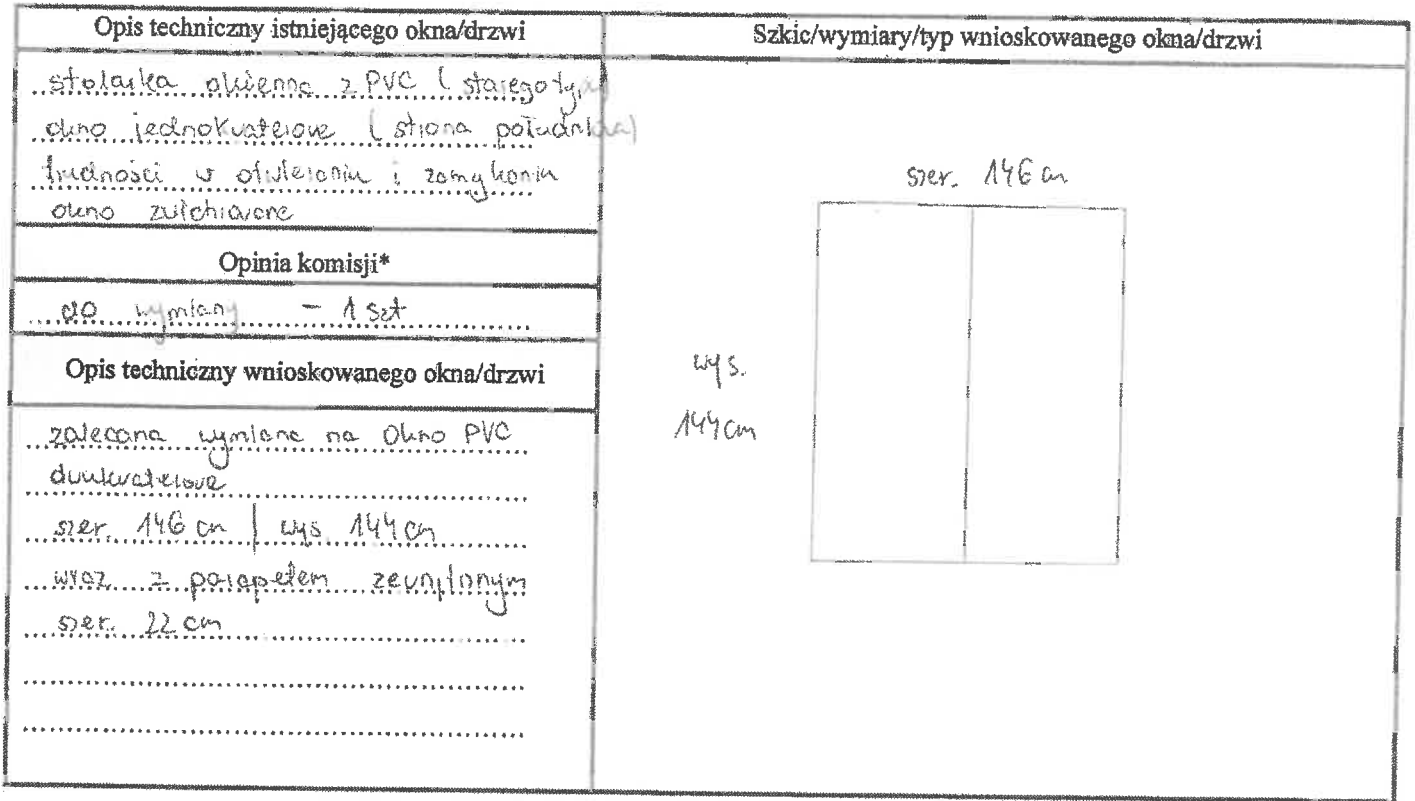 Opis techniczny istniejącego okna/drzwi
stolarka okienna z PVC (starego typu)
okno jednokwaterowe (strona południowa)
trudności w otwieraniu i zamykaniu
okno zwichrowane
Opinia komisji*
do wymiany - 1 szt
Opis techniczny wnioskowanego okna/drzwi
zalecana wymiana na okno PVC
dwukwaterowe
szer. 146 cm | wys. 144 cm
wraz z parapetem zewnętrznym
szer. 22 cm
Szkic/wymiary/typ wnioskowanego okna/drzwi
szer. 146 cm
wys.
144 cm